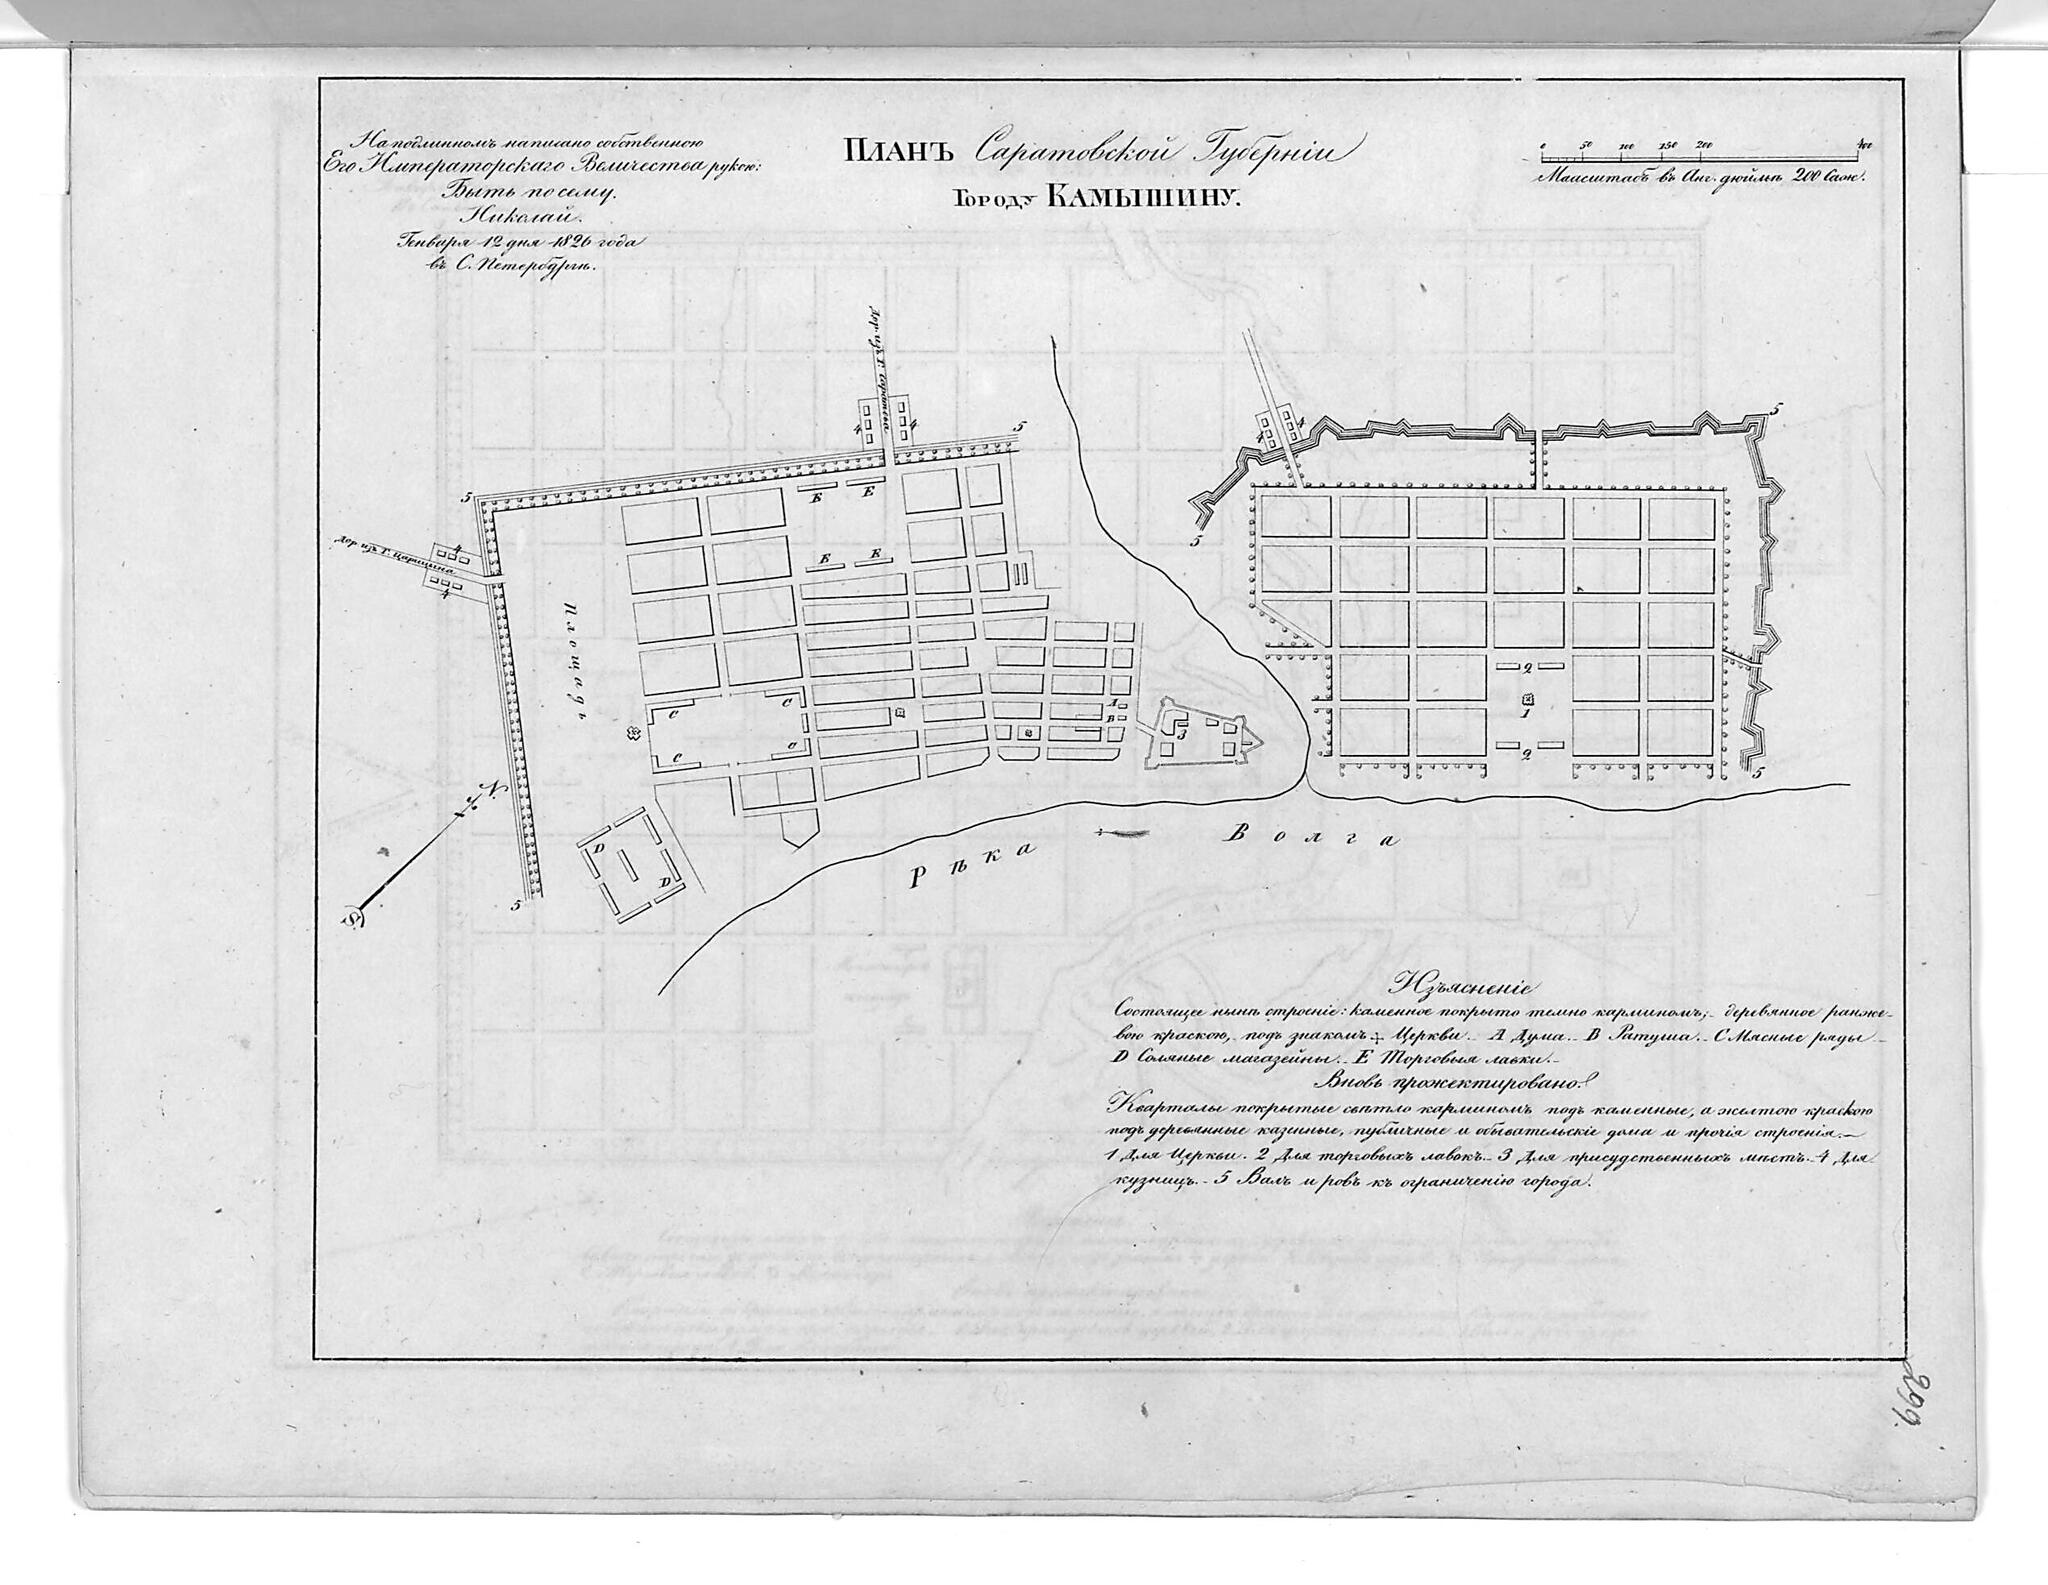 На подлинномъ написано собственною
Его Императорскаго Величества рукою:
Быть по сему.
Николай.
Генваря 12 дня 1826 года
въ С. Петербургѣ.
ПЛАНЪ Саратовской Губерніи
Городу КАМЫШИНУ.
0 50 100 150 200 400
Маасштабъ въ Анг. дюймѣ 200 Саж.
Дор. изъ Г. Саратова.
4 4
5
5
Дор. изъ Г. Царицына
4
4
Площадь
E E
E E
C C
C C
A
B
3
D
D
5
N.
S.
4 4
5
5
2
1
2
5
Рѣка Волга
Изъясненіе
Состоящее нынѣ строеніе: каменное покрыто темно карминомъ;- деревянное ранже-
вою краскою,- подъ знакомъ ✣ Церкви.- A Дума.- B Ратуша.- C Мясные ряды.-
D Соляные магазейны.- E Торговыя лавки.-
Вновь прожектировано.
Кварталы покрытые свѣтло карминомъ подъ каменные, а желтою краскою
подъ деревянные казенные, публичные и обывательскіе дома и прочія строенія.-
1 Для Церкви. 2 Для торговыхъ лавокъ.- 3 Для присудственныхъ мѣстъ.- 4 Для
кузницъ.- 5 Валъ и ровъ къ ограниченію города.
299.